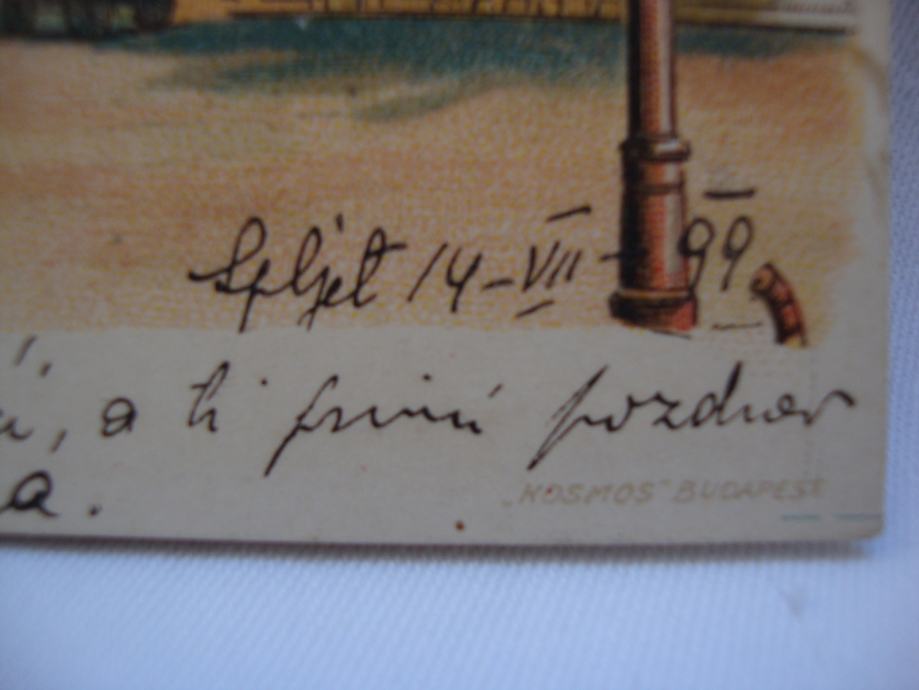 Spljet 14-VII-99
, a ti primi pozdrav
a.
„KOSMOS" BUDAPEST